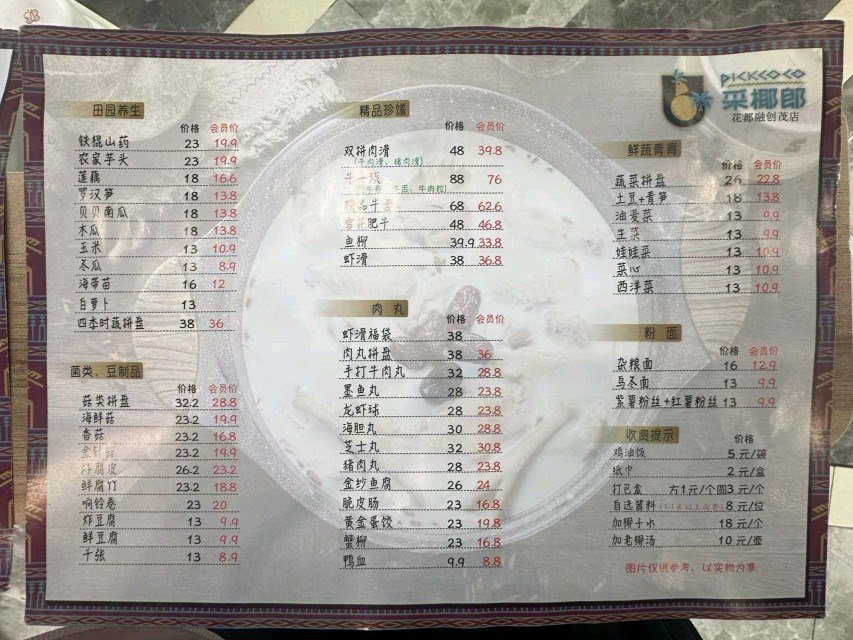 PICKCOCO
采椰郎
花都融创茂店
田园养生
价格 会员价
铁棍山药 23 19.9
农家芋头 23 19.9
莲藕 18 16.6
罗汉笋 18 13.8
贝贝南瓜 18 13.8
木瓜 18 13.8
玉米 13 10.9
冬瓜 13 8.9
海带苗 16 12
白萝卜 13
四季时蔬拼盘 38 36
菌类、豆制品
价格 会员价
菇类拼盘 32.2 28.8
海鲜菇 23.2 19.9
香菇 23.2 16.8
金针菇 23.2 19.9
炸腐皮 26.2 23.2
鲜腐竹 23.2 18.8
响铃卷 23 20
炸豆腐 13 9.9
鲜豆腐 13 9.9
千张 13 8.9
精品珍馐
价格 会员价
双拼肉滑 48 39.8
(牛肉滑、猪肉滑)
牛一族 88 76
牛舌、牛肉粒)
品牛舌 68 62.6
雪花肥牛 48 46.8
鱼柳 39.9 33.8
虾滑 38 36.8
肉丸
价格 会员价
虾滑福袋 38
肉丸拼盘 38 36
手打牛肉丸 32 28.8
墨鱼丸 28 23.8
龙虾球 28 23.8
海胆丸 30 28.8
芝士丸 32 30.8
猪肉丸 28 23.8
金纱鱼腐 26 24
脆皮肠 23 16.8
黄金蛋饺 23 19.8
蟹柳 23 16.8
鸭血 9.9 8.8
鲜蔬青青
价格 会员价
蔬菜拼盘 26 22.8
土豆+青笋 18 13.8
油麦菜 13 9.9
生菜 13 9.9
娃娃菜 13 10.9
菜心 13 10.9
西洋菜 13 10.9
粉面
价格 会员价
杂粮面 16 12.9
乌冬面 13 9.9
紫薯粉丝+红薯粉丝 13 9.9
收费提示
价格
鸡油饭 5 元/碗
纸巾 2 元/盒
打包盒 方1元/个圆3 元/个
自选酱料(1.1米以上收费) 8 元/位
加椰子水 18 元/个
加老椰汤 10 元/壶
图片仅供参考，以实物为准